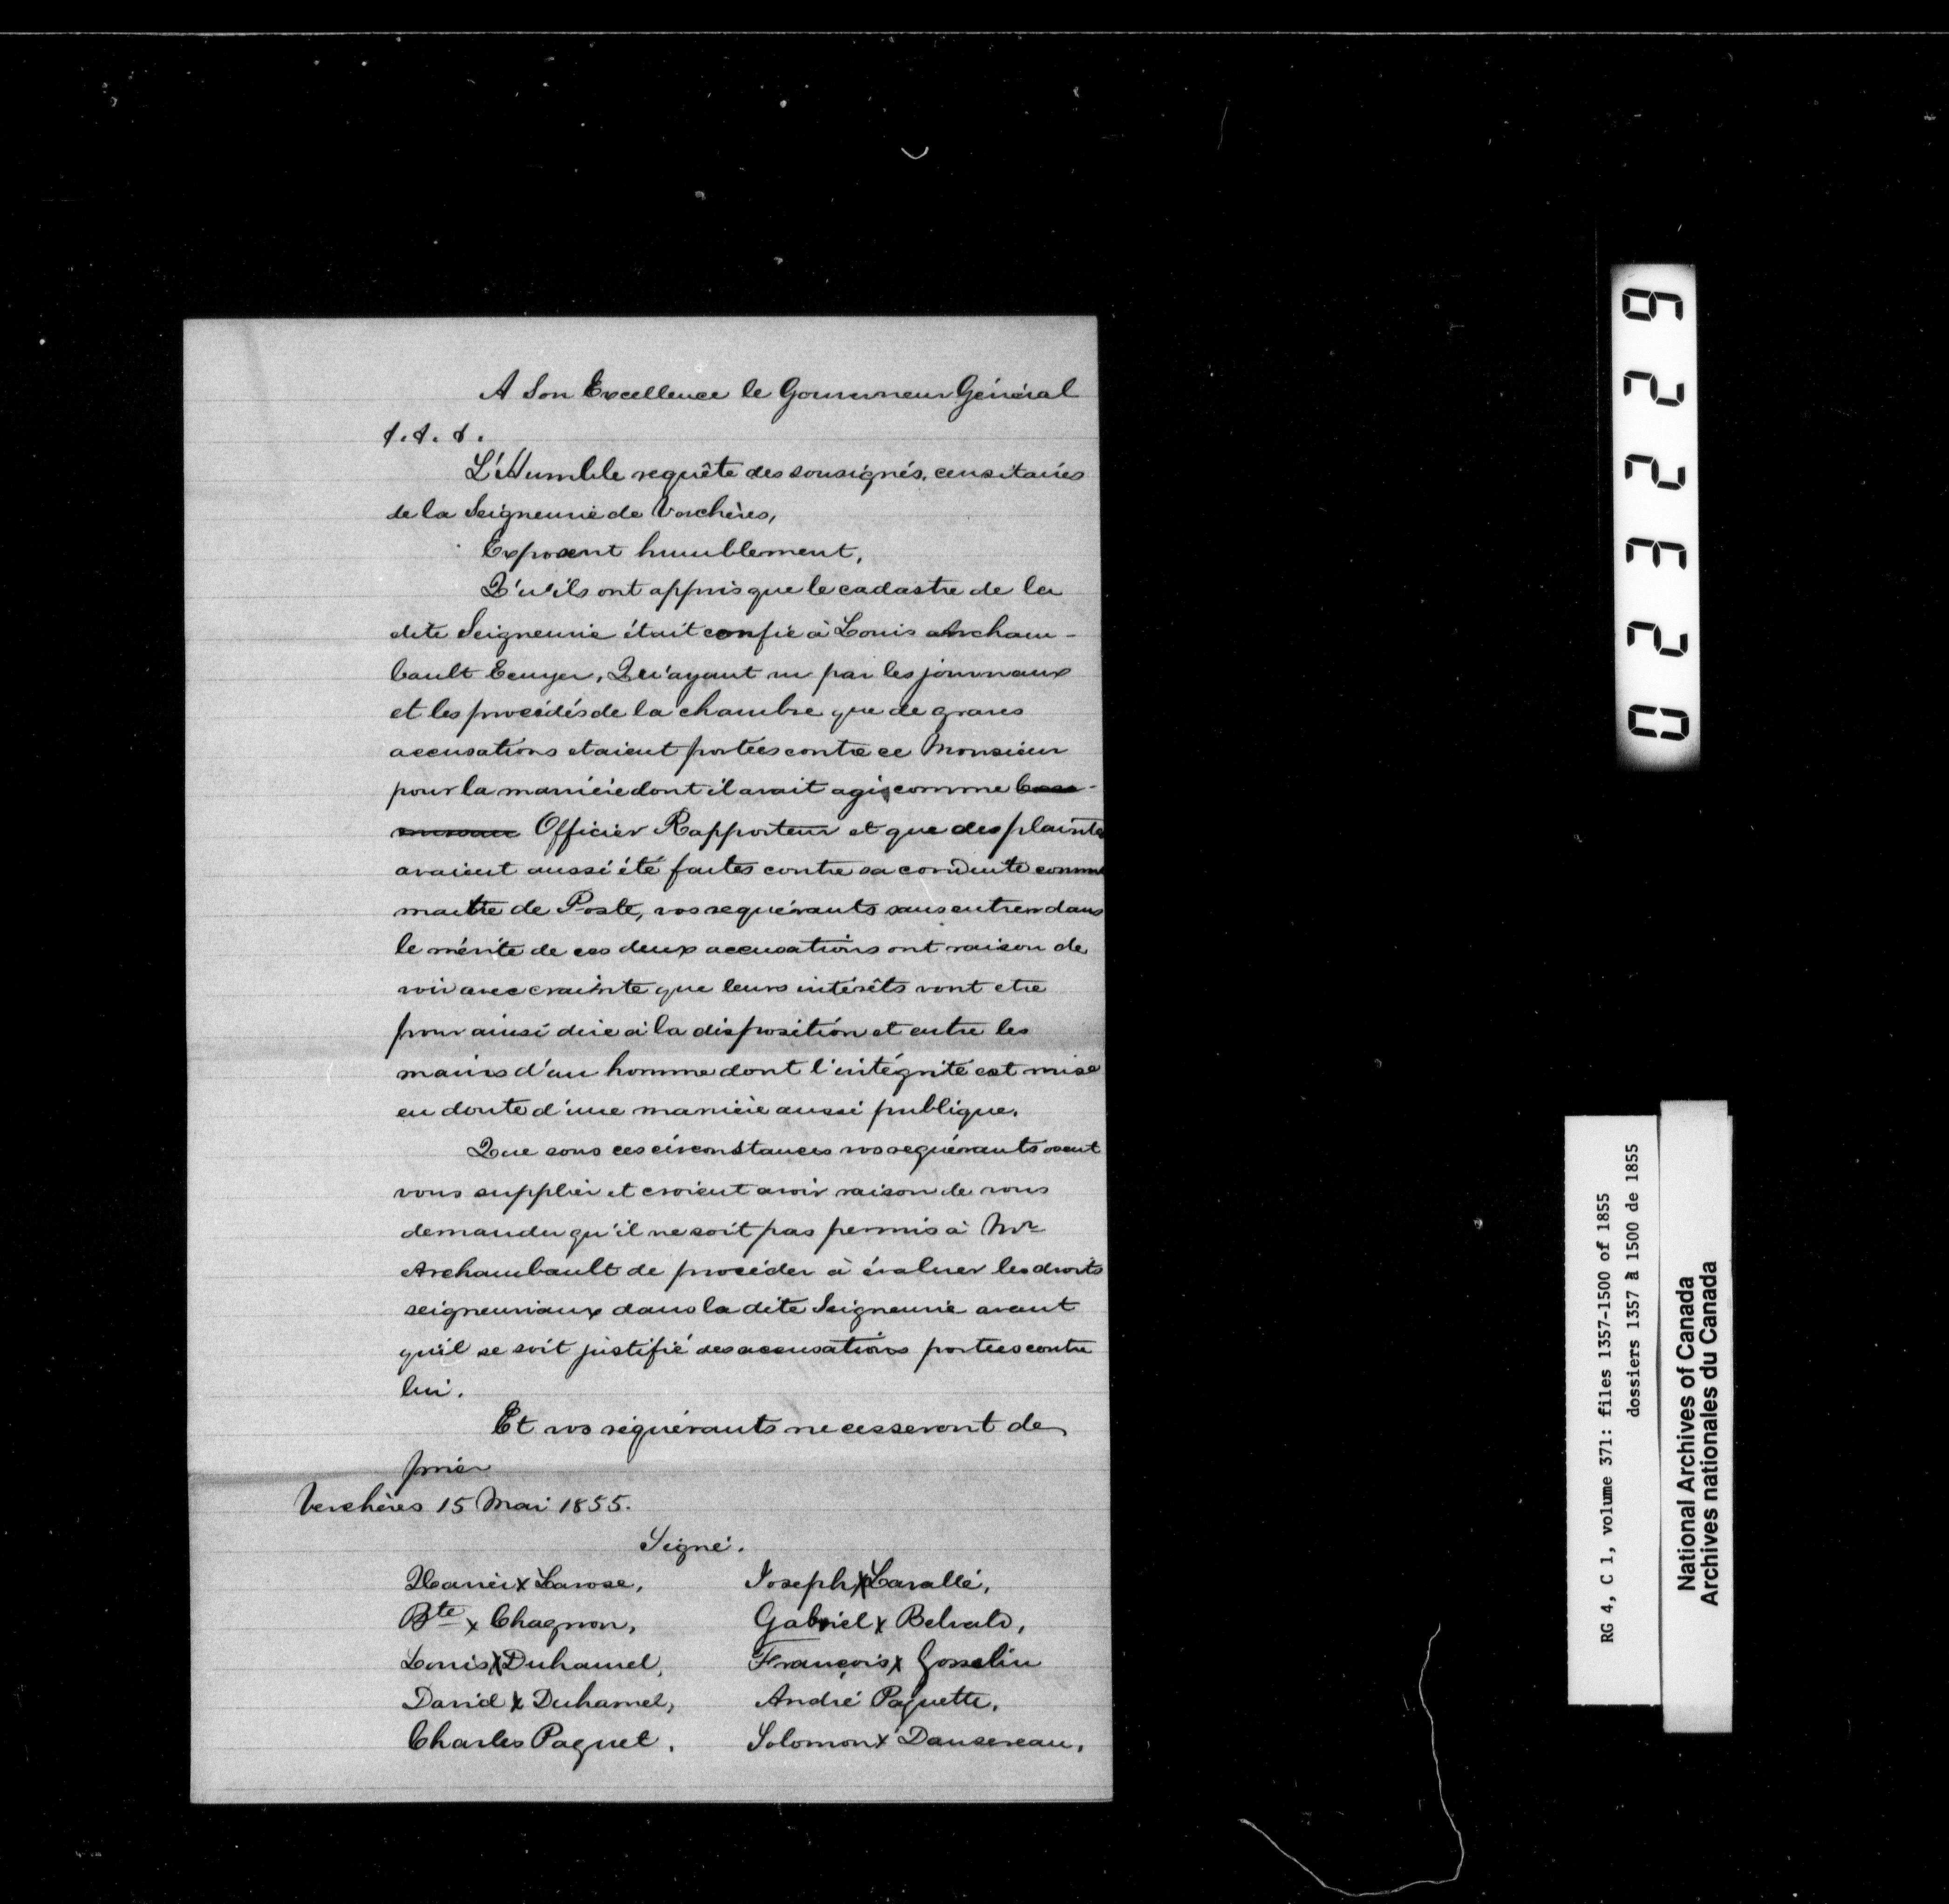 A Son Excellence le Gouverneur Général
&. &. &.
L'Humble requête des sousignés, censitaires
de la Seigneurie de Verchères,
Exposent humblement,
Qu'ils ont appris que le cadastre de la
dite Seigneurie était confié à Louis Archam-
bault Ecuyer, Qu'ayant vu par les journaux
et les procédés de la chambre que de graves
accusations etaient portées contre ce Monsieur
pour la manière dont il avait agis comme
Officier Rapporteur et que des plaintes
avaient aussi été faites contre sa conduite comme
maitre de Poste, vos requérants sans entrer dans
le mérite de ces deux accusations ont raison de
voir avec crainte que leurs intérêts vont etre
pour ainsi dire à la disposition et entre les
mains d'un homme dont l'intégrité est mise
en doute d'une manière aussi publique.
Que sous ces circonstances vos requérants osent
vous supplier et croient avoir raison de vous
demander qu'il ne soit pas permis à Mr
Archambault de procéder à évaluer les droits
seigneuriaux dans la dite Seigneurie avant
qu'il se soit justifié des accusations portées contre
lui.
Et vos requérants ne cesseront de
prier
Verchères 15 Mai 1855.
Signé.
Xavier x Larose, Joseph x Lavallé,
Bte x Chagnon, Gabriel x Belvals,
Louis x Duhamel, François x Gosselin
David x Duhamel, André Paquette,
Charles Paquet. Solomon x Dansereau,
022329
RG 4, C 1, volume 371: files 1357-1500 of 1855
dossiers 1357 à 1500 de 1855
National Archives of Canada
Archives nationales du Canada